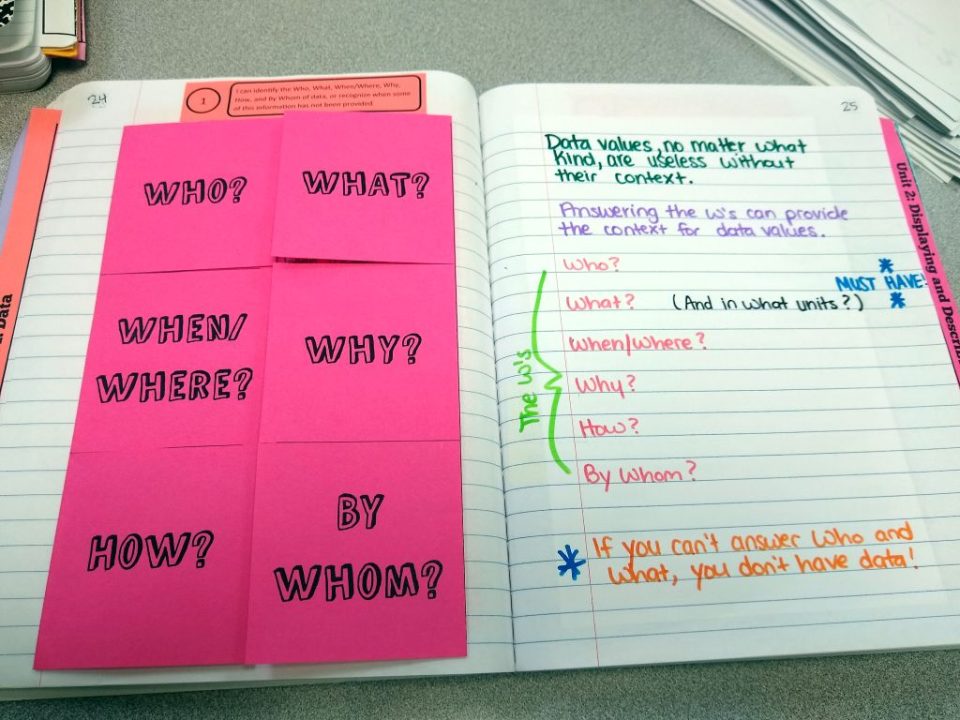 24
1
I can identify the Who, What, When/Where, Why,
How, and By Whom of data, or recognize when some
of this information has not been provided
WHO?
WHAT?
WHEN/
WHERE?
WHY?
HOW?
BY
WHOM?
Data
25
Data values, no matter what
kind, are useless without
their context.
Answering the W's can provide
the context for data values.
The W's
Who?
What? (And in what units?)
* MUST HAVE! *
When/Where?
Why?
How?
By Whom?
* If you can't answer Who and
What, you don't have data!
Unit 2: Displaying and